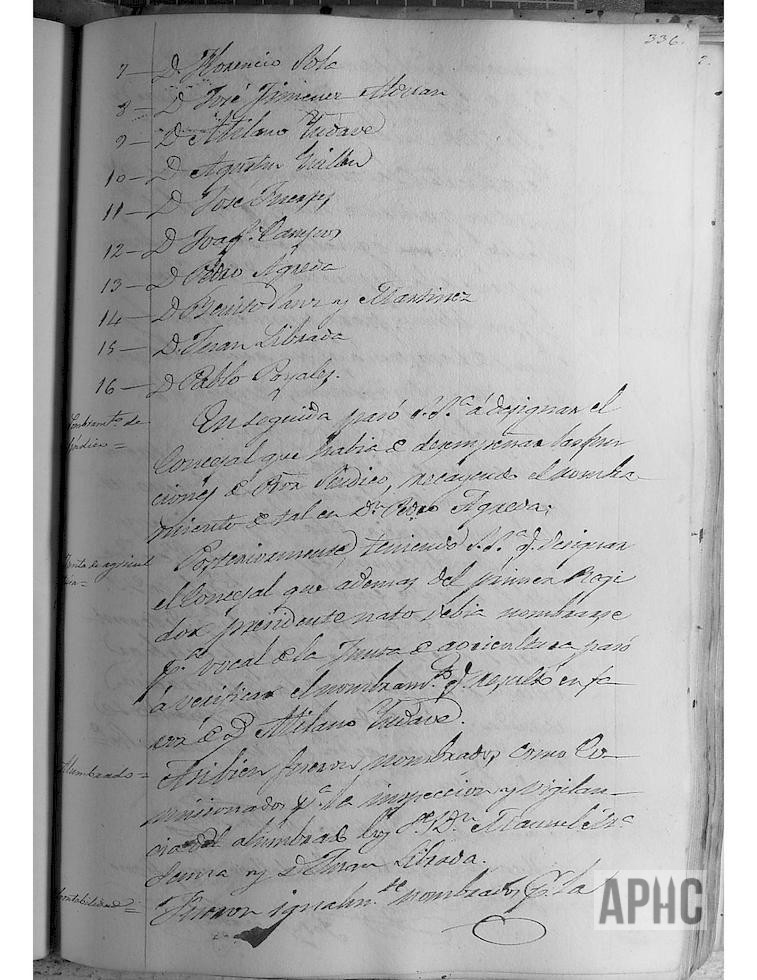 336.
7 — D. Florencio Sola
8 — D José Jimenez Morran
9 — D Atilano Tudave
10 — D Agustin Guillen
11 — D José Fuertes
12 — D Joaqn. Campos
13 — D Pedro Agreda
14 — D Benito Sanz y Martinez
15 — D. Juan Librada
16 — D Pablo Poyales.
Nombramto. de
Sindico =
En seguida pasó S. Sa. á designar el
Concejal que habia de desempeñar las fun
ciones de Pror Sindico, recayendo el nombra
miento de tal en Dn. Pedro Agreda,
Junta de agricul
tura =
Posteriormente, teniendo S. Sa. q. designar
el Concejal que ademas del primer Regi
dor presidente nato debia nombrarse
pa. vocal de la Junta de agricultura pasó
á verificar el nombramto. q. resultó en fa
vor de D Atilano Tudave.
Alumbrado =
Tambien fueron nombrados como Co-
misionados pa. la inspeccion y vigilan-
cia del alumbrado los Sres. Dn. Manuel
y D Juan Librada.
Contabilidad =
Fueron igualmte. nombrados pa. la
APHC